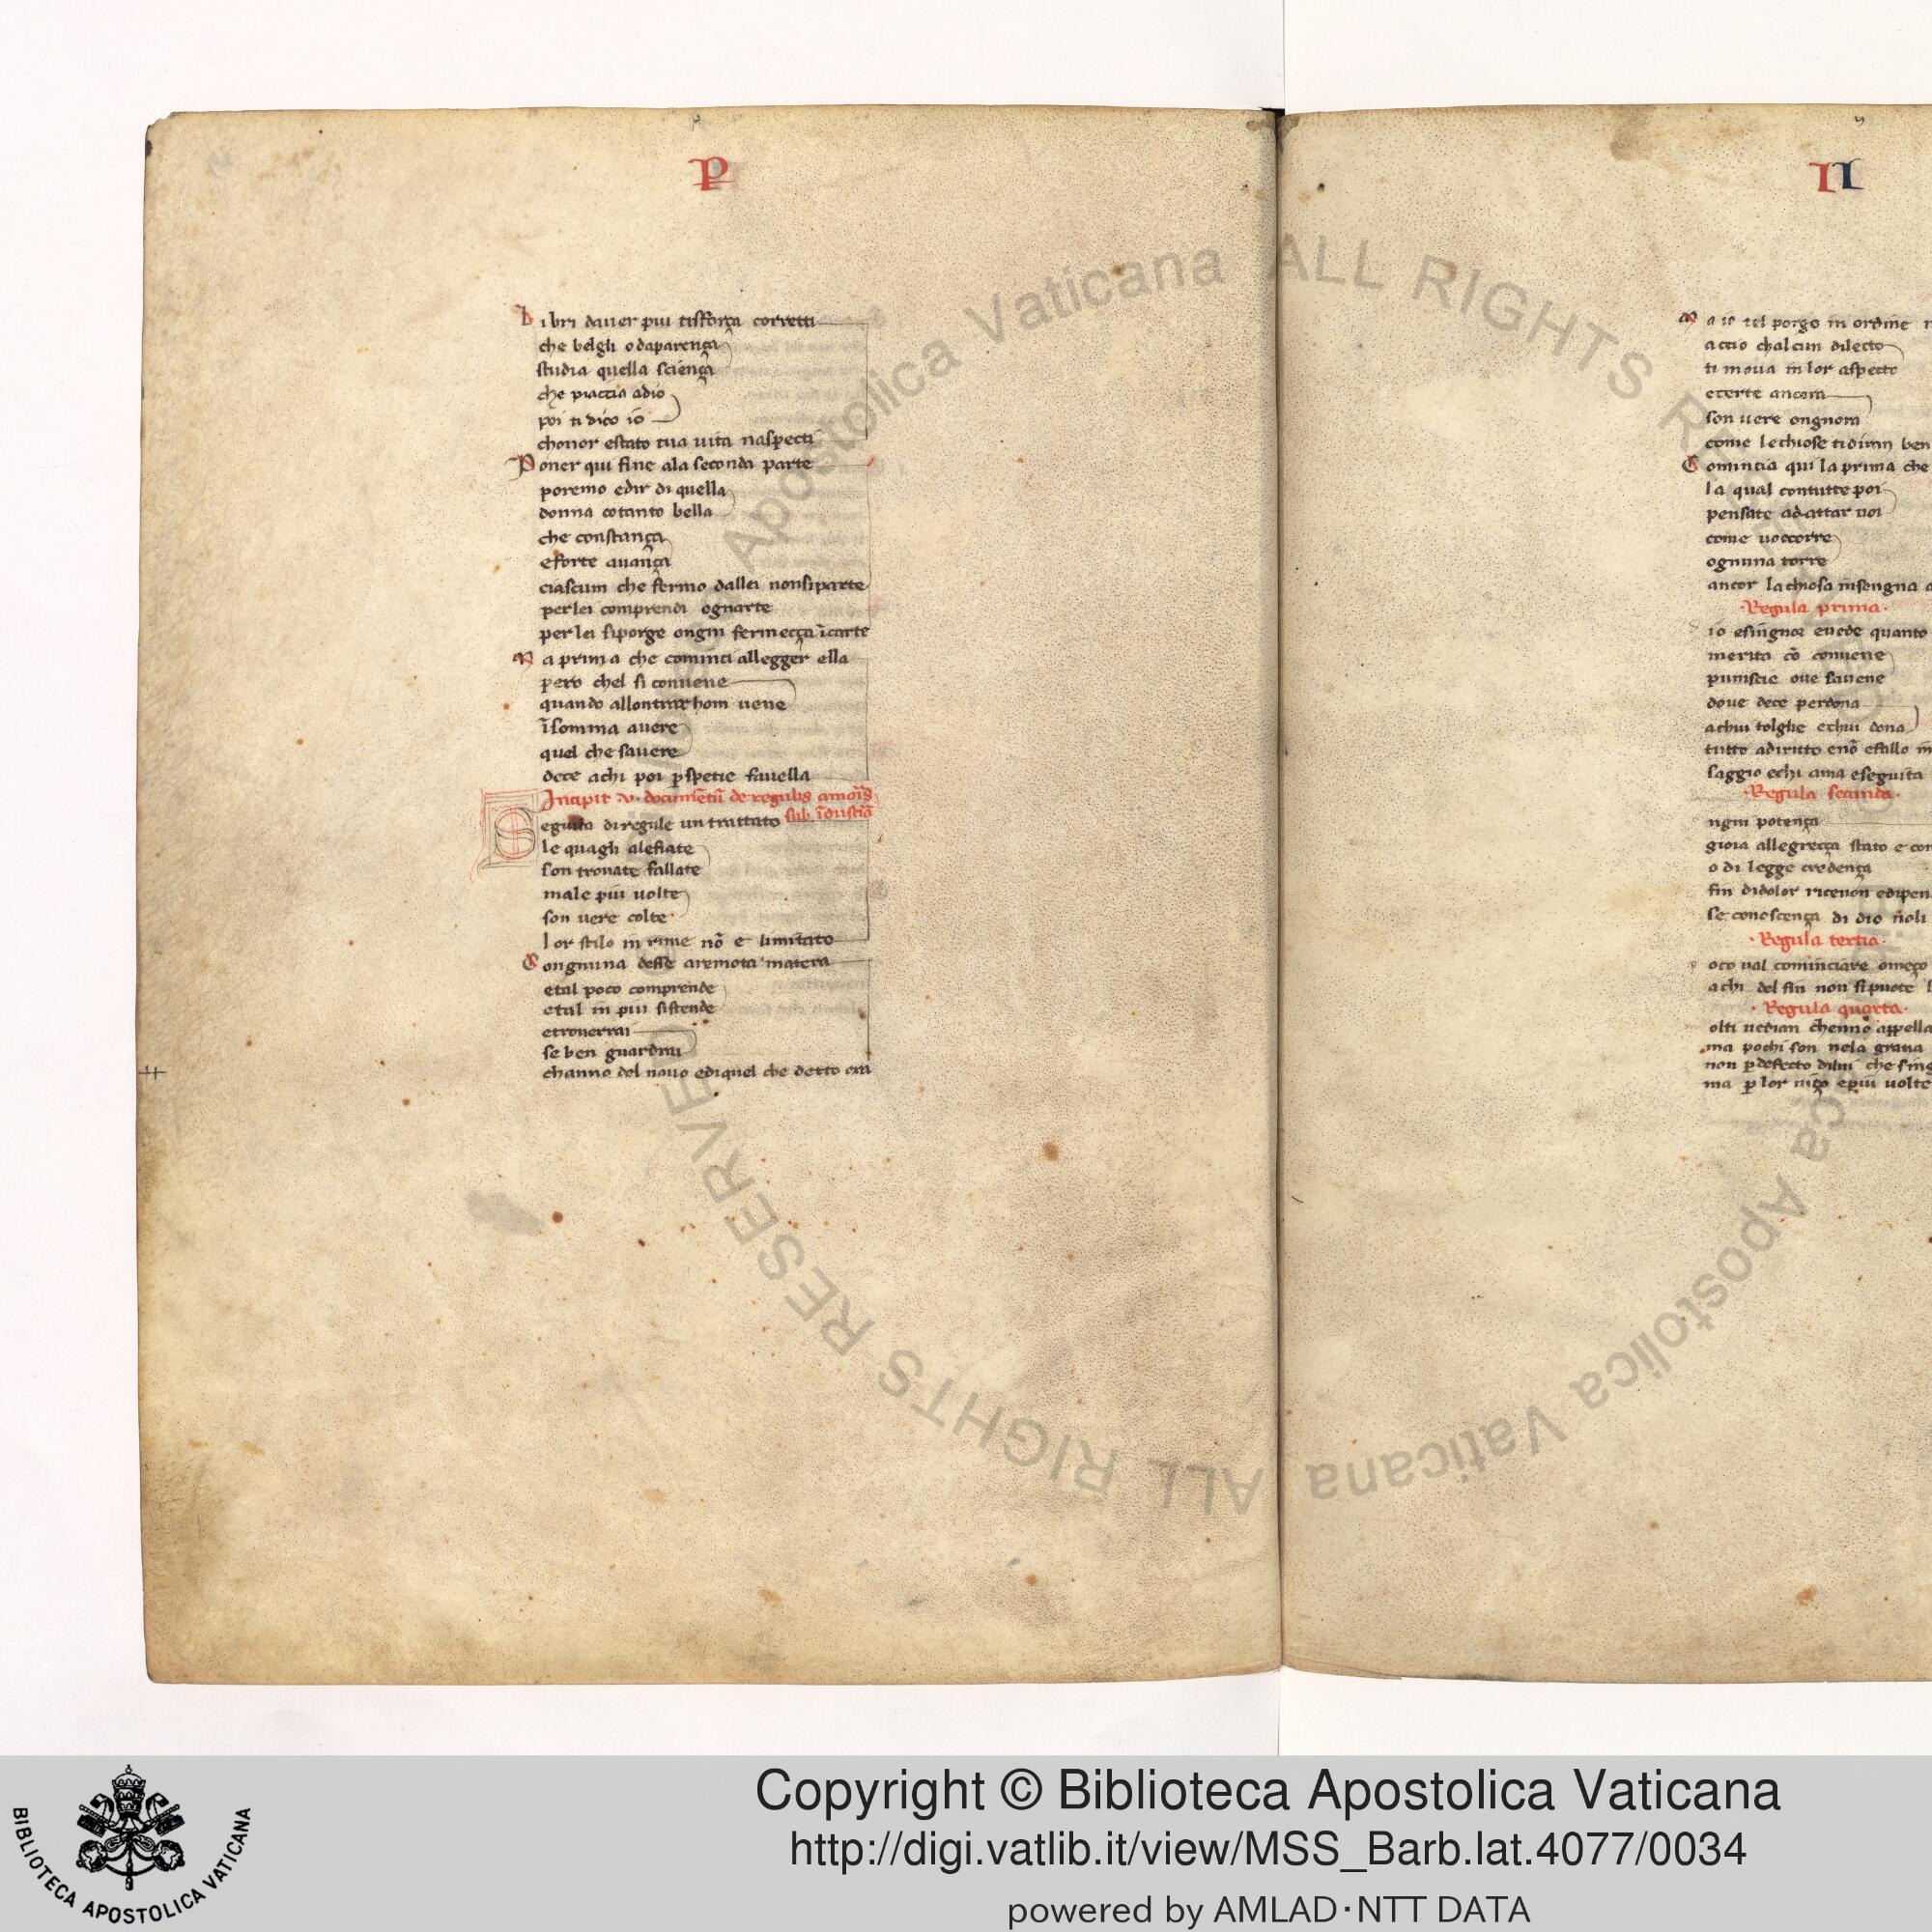 P
Libri daver piu tisforça corretti
che belgli odaparença
studia quella sciença
che piaccia adio
poi ti dico io
chonor estato tua uita naspecti
Poner qui fine ala seconda parte
poremo edir di quella
donna cotanto bella
che constança
eforte auança
ciascum che fermo dallei nonsiparte
perlei comprendi ognarte
per lei siporge ongni fermecça ĩcarte
Ma prima che cominci allegger ella
pero chel si conuene
quando allontrar hom uene
ĩsomma auere
quel che sauere
dece achi poi p spetie fauella
Incipit .v. documẽtũ de regulis amoris
Seguita di regule un trattato sub ĩdustria
le quagli alefiate
son trouate fallate
male piu uolte
son uere colte
lor stilo in rime nõ e limitato
Congnuna desse aremota matera
etal poco comprende
etal in piu sistende
etrouerrai
se ben guardrai
channo del nouo ediquel che detto era
II
Ma io tel porgo in ordine
accio chalcun dilecto
ti moua in lor aspecto
ecerte ancora
son uere ongnora
come lechiose tidiran ben
Comincia qui la prima che
la qual contutte poi
pensate adattar uoi
come uoccorre
ognuna torre
ancor lachiosa insengna
Regula prima
io esingnor euede quanto
merita cõ conuene
puniscie oue sauene
doue dece perdona
achui tolghe echui dona
tutto adiritto enõ efallo
saggio echi ama eseguita
Regula secunda
ngni potença
gioia allegrecça stato e
o di legge credença
fin didolor riceuon
se conoscença di dio nõli
Regula tertia
oco ual cominciare omeço
achi del fin non sipuote
Regula quarta
olti uedran chenno appella
ma pochi son nela graua
non p defecto dilui che
ma p lor uiço epiu uolte
Biblioteca Apostolica Vaticana ALL RIGHTS RESERVED
BIBLIOTECA APOSTOLICA VATICANA
Copyright © Biblioteca Apostolica Vaticana
http://digi.vatlib.it/view/MSS_Barb.lat.4077/0034
powered by AMLAD·NTT DATA